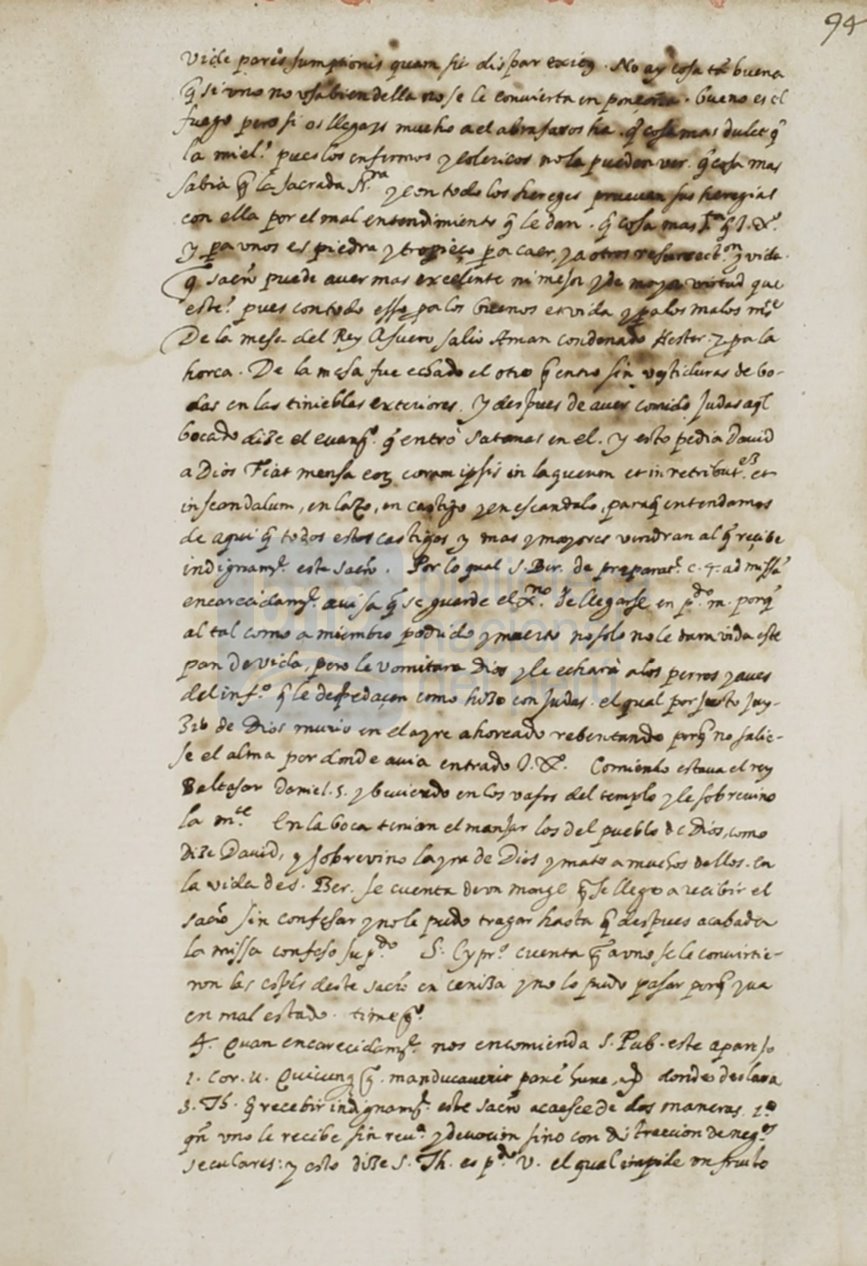 94
Vide paris sumptionis quam sit dispar exitꝯ. No ay cosa tã buena
q̃ si uno no usa bien della no se le convierta en ponçoña. bueno es el
fuego pero si os llegays mucho a el abrasaros ha. q̃ cosa mas dulce q̃
la miel? pues los enfermos y colericos no la pueden ver. q̃ cosa mas
sabia q̃ la sacrada Sra y con todo los hereges pruevan sus heregias
con ella por el mal entendimiento q̃ le dan. q̃ cosa mas q̃ J. X.º
y pa unos es piedra y tropieço pa caer, y a otros resurrecton y vida.
q̃ sacrõ puede aver mas excelente ni mejor y de mayor virtud que
este? pues con todo esso pa los buenos es vida y pa los malos mte
De la mesa del Rey Asuero salio Aman condenado Hester. 7. pa la
horca. De la mesa fue echado el otro q̃ entro sin vestiduras de bo-
das en las tinieblas exteriores. Y despues de aver comido Judas aql
bocado dize el evangº. q̃ entrò satanas en el. y esto pedia David
a Dios Fiat mensa eoꝝ coram ipsis in laqueum et in retributes et
in scandalum, en lazo, en castigo y en escandalo, paraq̃ entendamos
de aqui q̃ todos estos castigos y mas y mayores vendran al q̃ reçibe
indignamte. este sacrõ. Por lo qual S. Ber. de preparat. c. 4. ad missã
encarecidamte. avisa q̃ se guarde el Xno. de llegarse en pdo. m. porq̃
al tal como a miembro podrido y muerto no solo no le dara vida este
pan de vida, pero le vomitara Dios y le echarà a los perros y aves
del infº. q̃ le despedaçen como hizo con Judas. el qual por justo juy-
zio de Dios murio en el ayre ahorcado rebentando porq̃ no salies-
se el alma por donde avia entrado J. X. Comiendo estava el rey
Baltasar Daniel. 5. y beviendo en los vasos del templo y le sobrevino
la mte. En la boca tenian el manjar los del pueblo de Dios, como
dize David, y sobrevino la yra de Dios y mato a muchos dellos. En
la vida de S. Ber. se cuenta de un monge q̃ se llego a recibir el
sacrõ sin confesar y no le pudo tragar hasta q̃ despues acabada
la missa confeso su pdo. S. Cypr.º cuenta q̃ a uno se le convirtie-
ron las espes deste sacrõ en ceniza y no lo pudo pasar porq̃ yva
en mal estado.
4. Quan encarecidamte. nos encomienda S. Pab. este aparejo
1. Cor. 11. Quicunq̃ manducaverit panẽ hunc, donde declara
S. Th. q̃ recebir indignamte. este sacrõ acaesce de dos maneras. 1ª
qñ uno le recibe sin reva. y devocion sino con distraccion de negos
seculares: y esto dize S. Th. es pdo. V. el qual impide un fruto